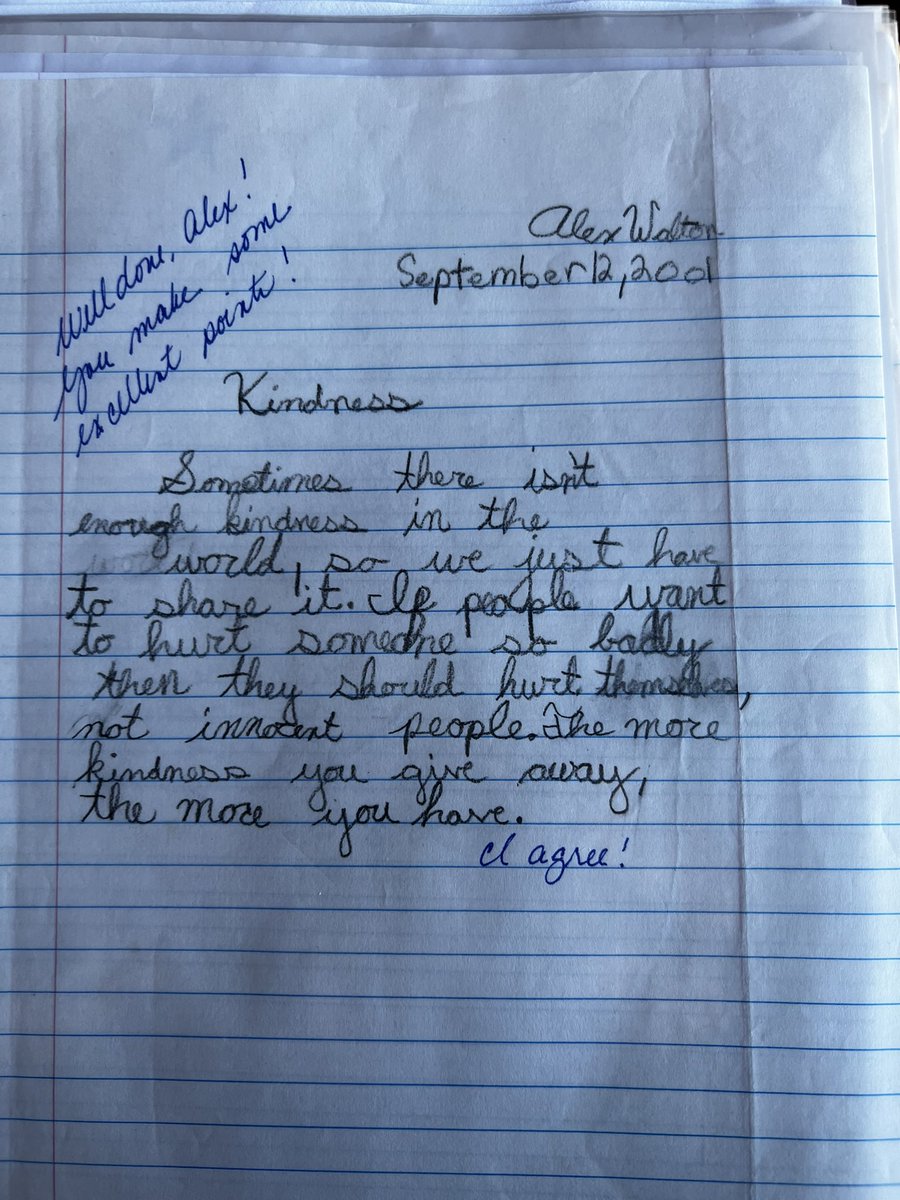 Well done, Alex!
You make some
excellent points!
Alex Walton
September 12, 2001
Kindness
Sometimes there isn't
enough kindness in the
world, so we just have
to share it. If people want
to hurt someone so badly
then they should hurt themselves,
not innocent people. The more
kindness you give away,
the more you have.
I agree!